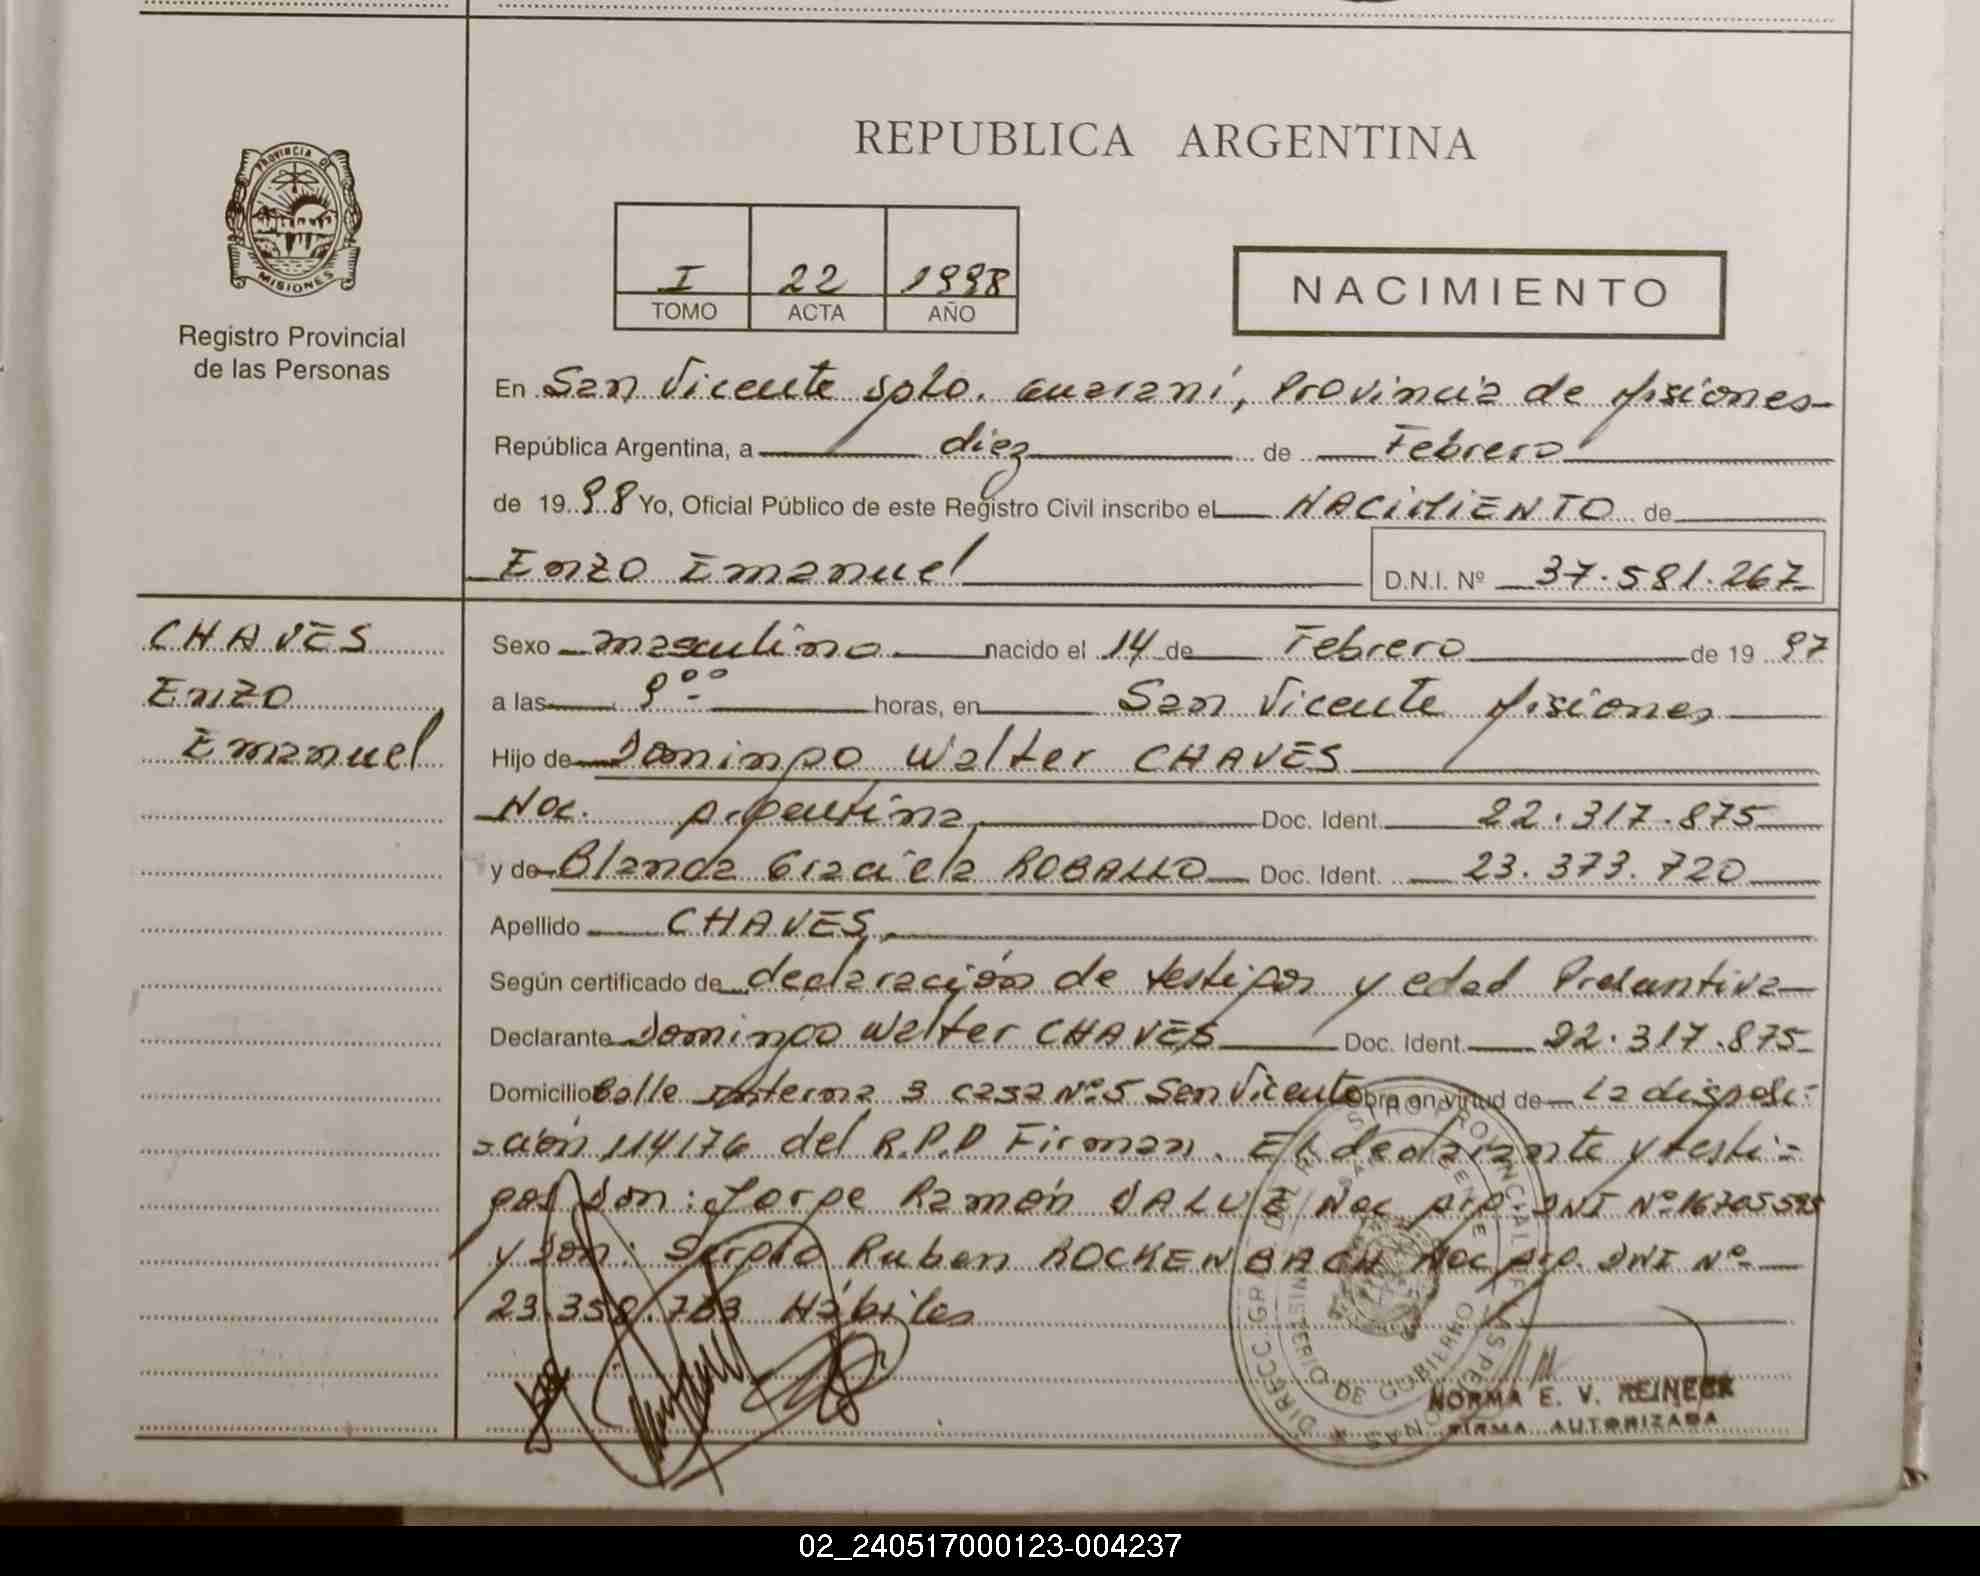 REPUBLICA ARGENTINA
PROVINCIA DE
MISIONES
Registro Provincial
de las Personas
I 22 1998
TOMO ACTA AÑO
NACIMIENTO
En San Vicente Dpto. Guaraní, Provincia de Misiones
República Argentina, a diez de Febrero
de 1998 Yo, Oficial Público de este Registro Civil inscribo el NACIMIENTO de
Enzo Emanuel D.N.I. Nº 37.581.267
CHAVES
Enzo
Emanuel
Sexo masculino nacido el 14 de Febrero de 1997
a las 9°° horas, en San Vicente Misiones
Hijo de Domingo Walter CHAVES
Nac. Argentina Doc. Ident. 22.317.875
y de Blanca Graciela ROBALLO Doc. Ident. 23.373.720
Apellido CHAVES
Según certificado de declaración de testigos y edad Presuntiva
Declarante Domingo Walter CHAVES Doc. Ident. 22.317.875
Domicilio Calle Interna 3 casa Nº 5 San Vicente Obra en virtud de La disposi-
ción 114176 del R.P.P Firman. El declarante y testi-
gos Don: Jorge Ramón DALUZ Nac Arg. DNI Nº 16705595
y Don: Sergio Ruben ROCKENBACH Nac Arg. DNI Nº
Hábiles
NORMA E. V. REINECK
FIRMA AUTORIZADA
02_240517000123-004237